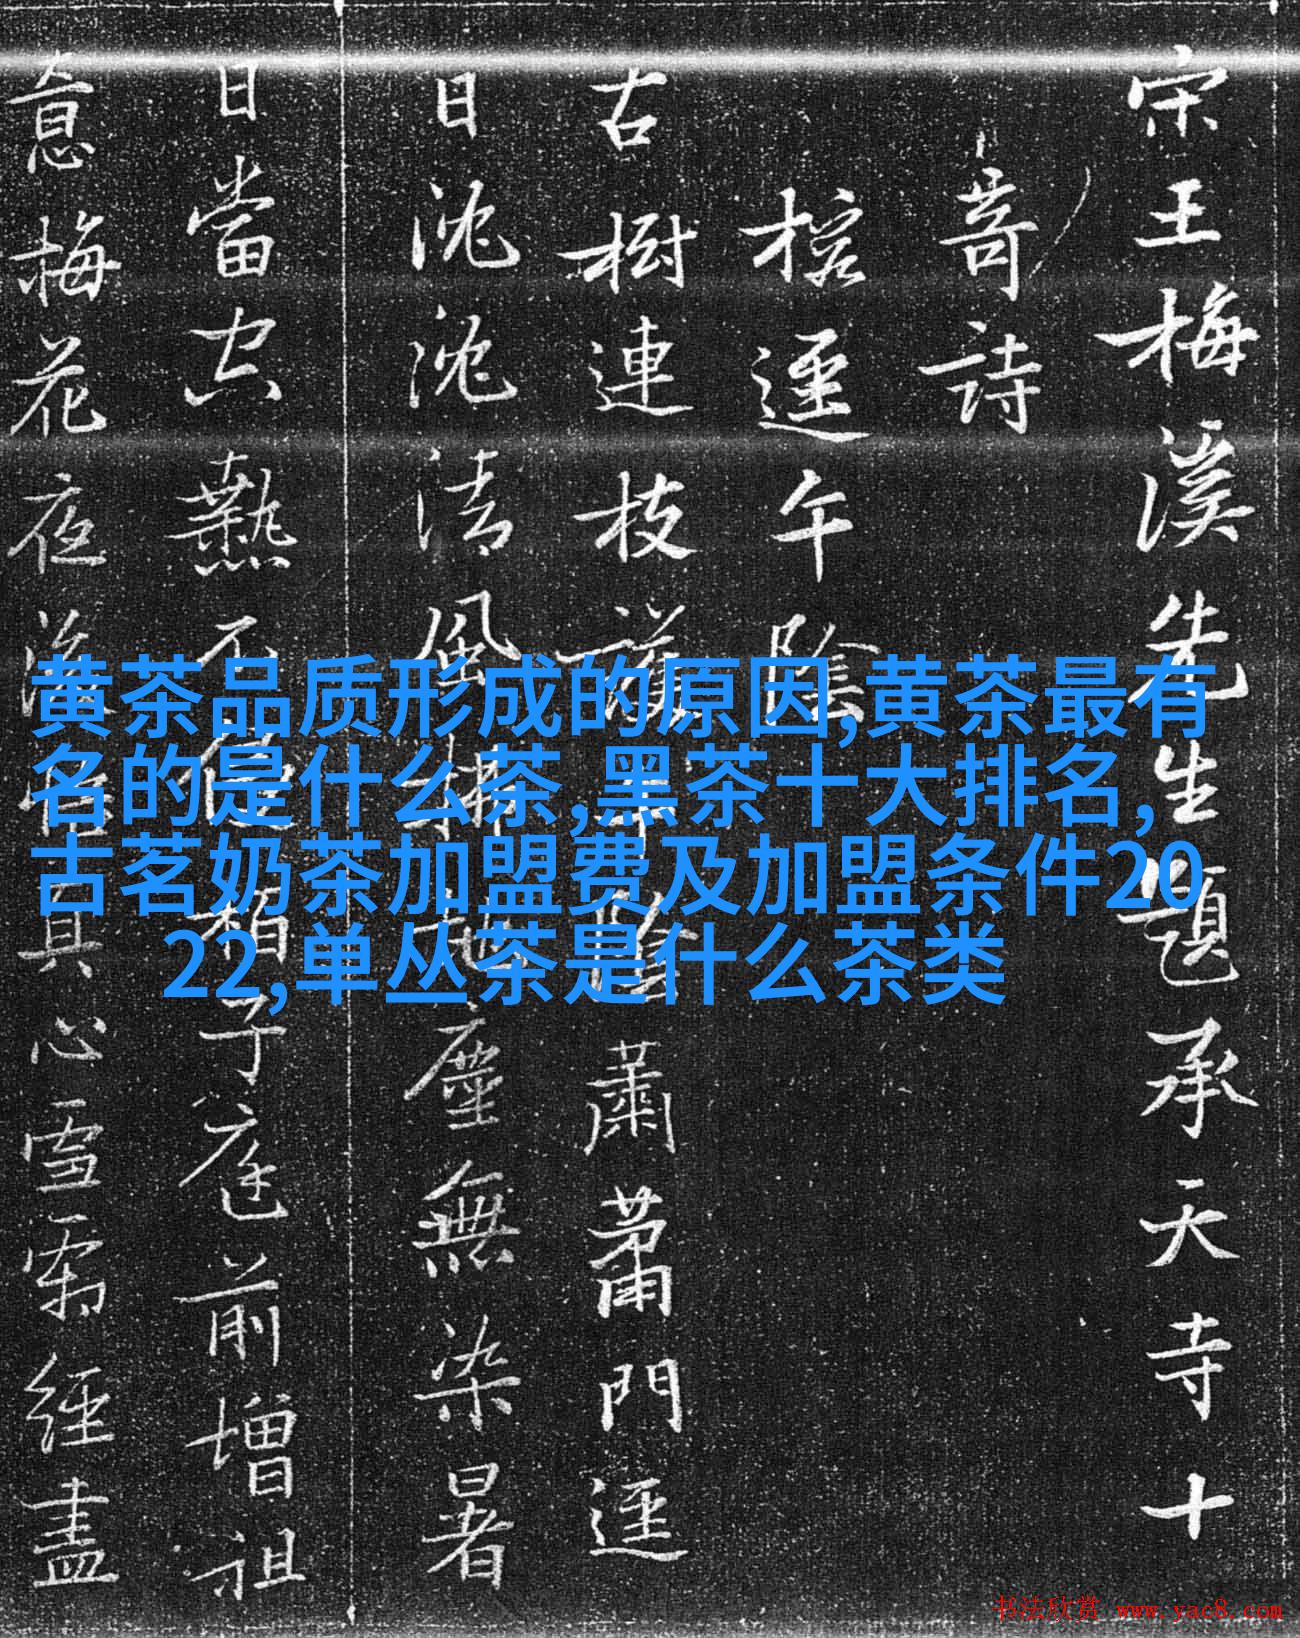 宋王梅溪先生題承天寺十
奇詩
榕逕午陰
古樹連枝蔭
陰蕭蕭門逕
日沈沈清風掃地塵無染暑
日當空熱不侵
柏子庭前增祖
意梅花夜
真心雪霽經盡
黄茶品质形成的原因,黄茶最有
名的是什么茶,黑茶十大排名,
古茗奶茶加盟费及加盟条件20
22,单丛茶是什么茶类
书法欣赏 www.yac8.com